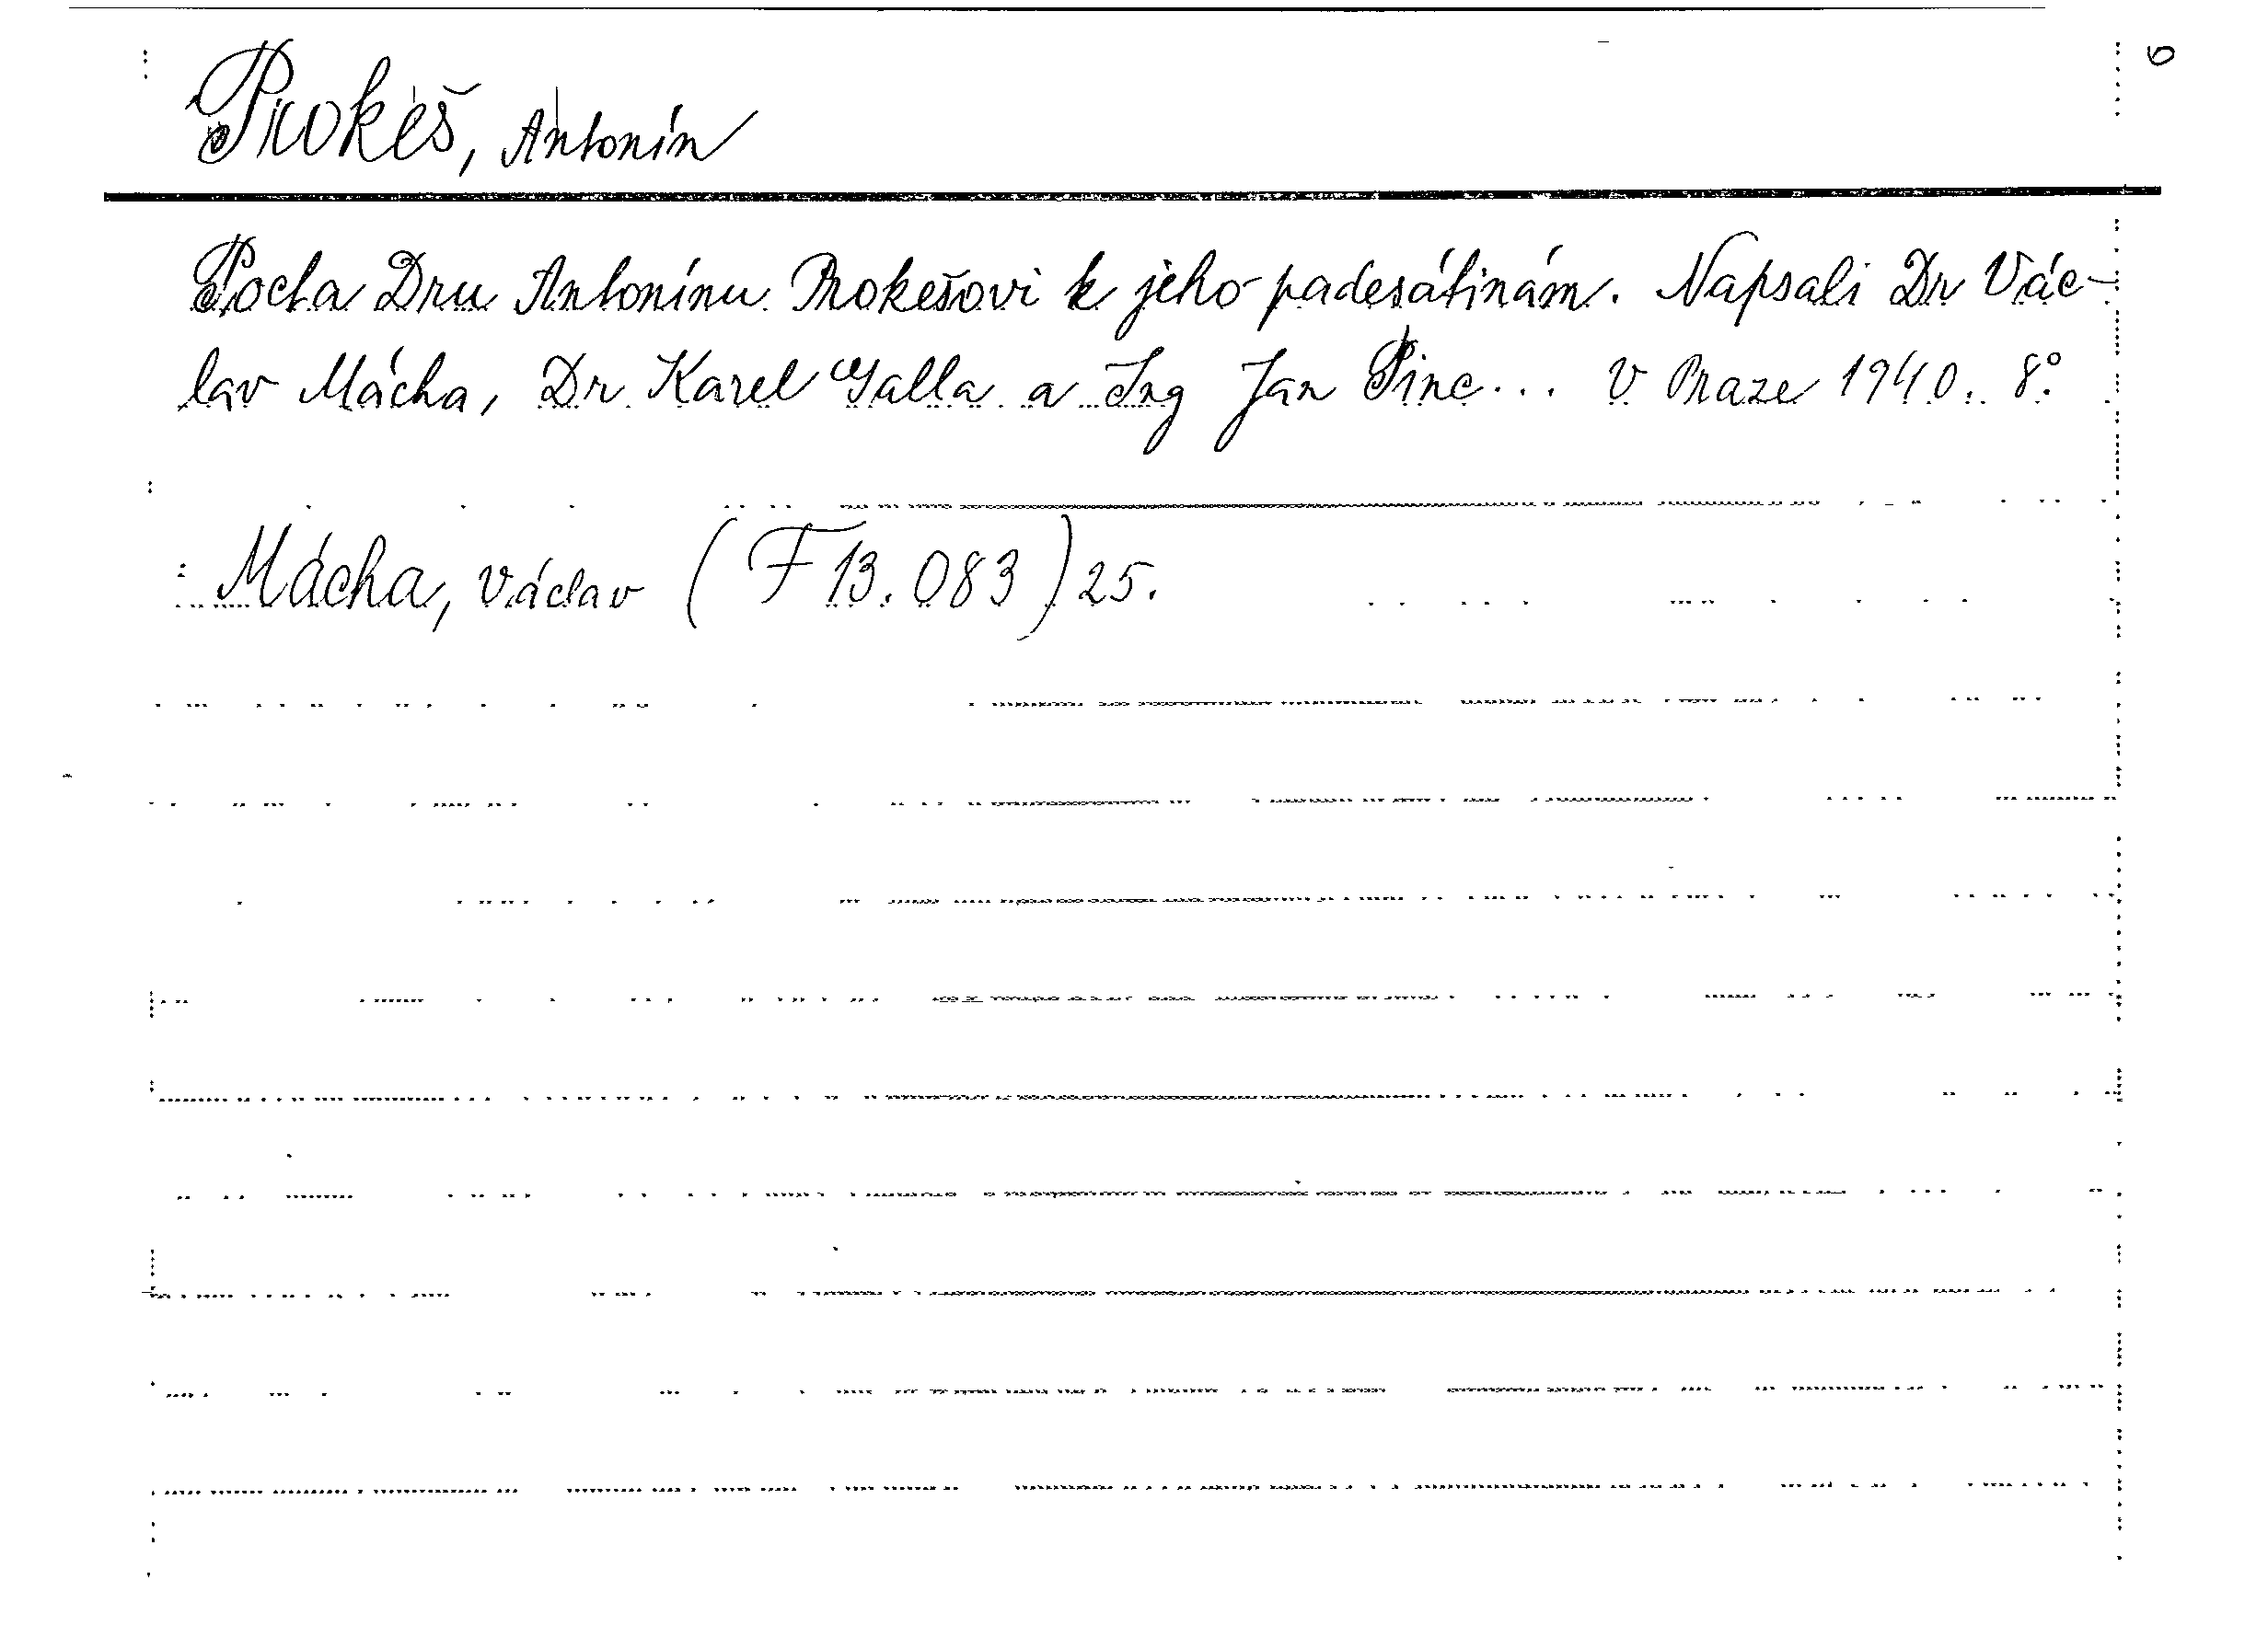 Prokeš, Antonín
6
Pocta Dru Antonínu Prokešovi k jeho padesátinám. Napsali Dr Vác-
lav Mácha, Dr. Karel Galla a Ing Jan Pinc... V Praze 1940. 8°.
Mácha, Václav (F 13.083) 25.